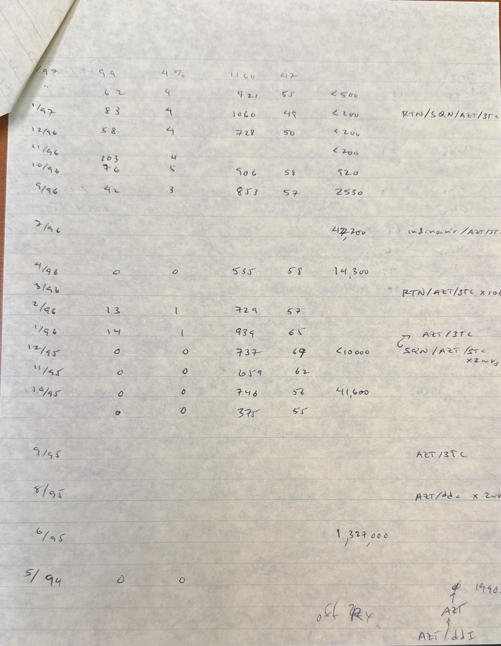 /97 99 4% 1160 47
" 62 4 921 55 <500
1/97 83 4 1060 49 <200 RTN/SQN/AZT/3TC
12/96 58 4 728 50 <200
11/96 <200
103 4
10/96 76 5 906 58 920
9/96 42 3 853 57 2530
7/96 indinavir/AZT/3T
4/96 0 0 535 58 14,300
3/96 RTN/AZT/3TC x10d
2/96 13 1 729 57
1/96 14 1 939 65 AZT/3TC
12/95 0 0 737 69 <10000 SQN/AZT/3TC
x2wks
11/95 0 0 659 62
10/95 0 0 746 56 41,600
0 0 375 55
9/95 AZT/3TC
8/95 AZT/ddc x 2wk
6/95 1,327,000
5/94 0 0
φ 1990
↑
off Rx AZT
↑
AZT/ddI